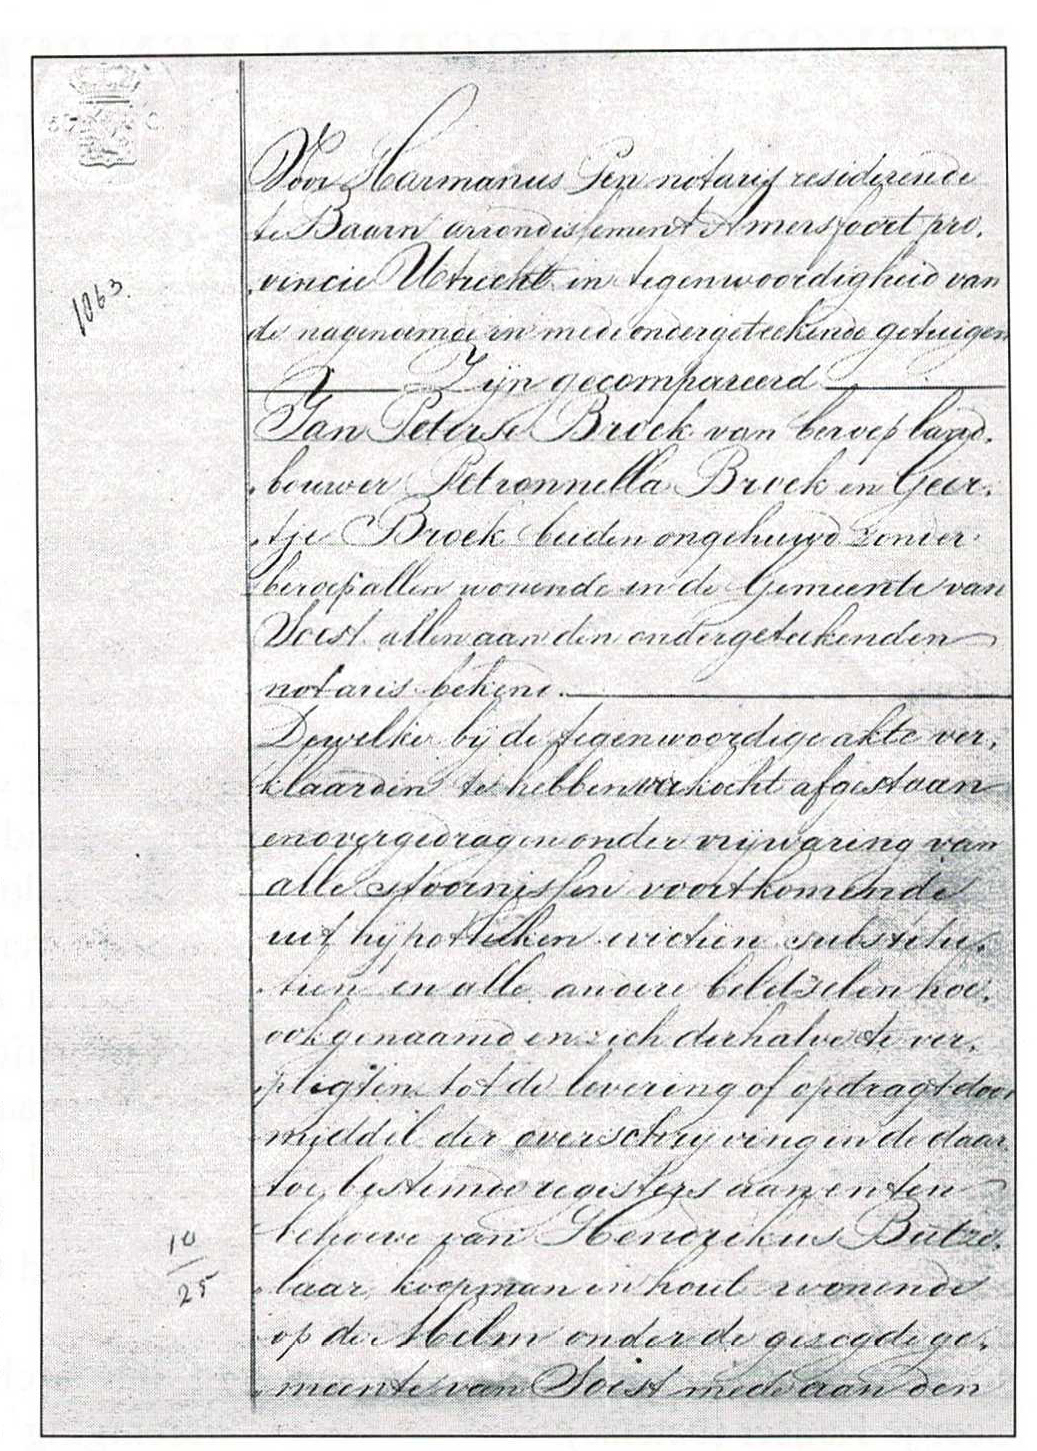 Voor Harmanus Pen notaris residerende
te Baarn arrondissement Amersfoort pro,
vincie Utrecht in tegenwoordigheid van
de nagenoemde en mede ondergeteekende getuigen
Zijn gecompareerd
1063.
Jan Peterse Broek van beroep land,
bouwer Petronnella Broek en Geer,
tje Broek beiden ongehuwd zonder
beroep allen wonende in de Gemeente van
Soest allen aan den ondergeteekenden
notaris bekend.
Dewelke bij de tegenwoordige akte ver,
klaarden te hebben verkocht afgestaan
en overgedragen onder vrijwaring van
alle stoornissen voortkomende
uit hijpotheken evictien substitu,
tien en alle andere beletzelen hoe,
ook genaamd en zich derhalve te ver,
pligten tot de levering of opdragt door
middel der overschrijving in de daar
toe bestemde registers aan en ten
behoeve van Hendrikus Butze,
laar, koopman in hout wonende
op de Melm onder de gezegde ge,
meente van Soest mede aan den
10
25